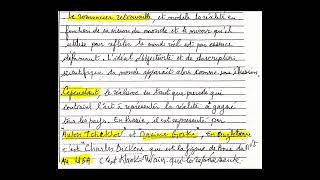 Le romancier retransmet, et modèle la réalité en
fonction de sa vision du monde et le miroir qu'il
utilise pour refléter le monde réel est par essence
déformant. L'idéal d'objectivité et de description
scientifique du monde apparait alors comme une illusion.
Cependant, le réalisme en tant que procédé qui
contraint l'art à représenter la réalité a gagné
tous les pays. En Russie, il est représenté par
Anton Tchekhov et Maxime Gorki, En Angleterre
c'est Charles Dickens qui est la figure de Proue du
Au USA c'est Mark Twain qui le représente